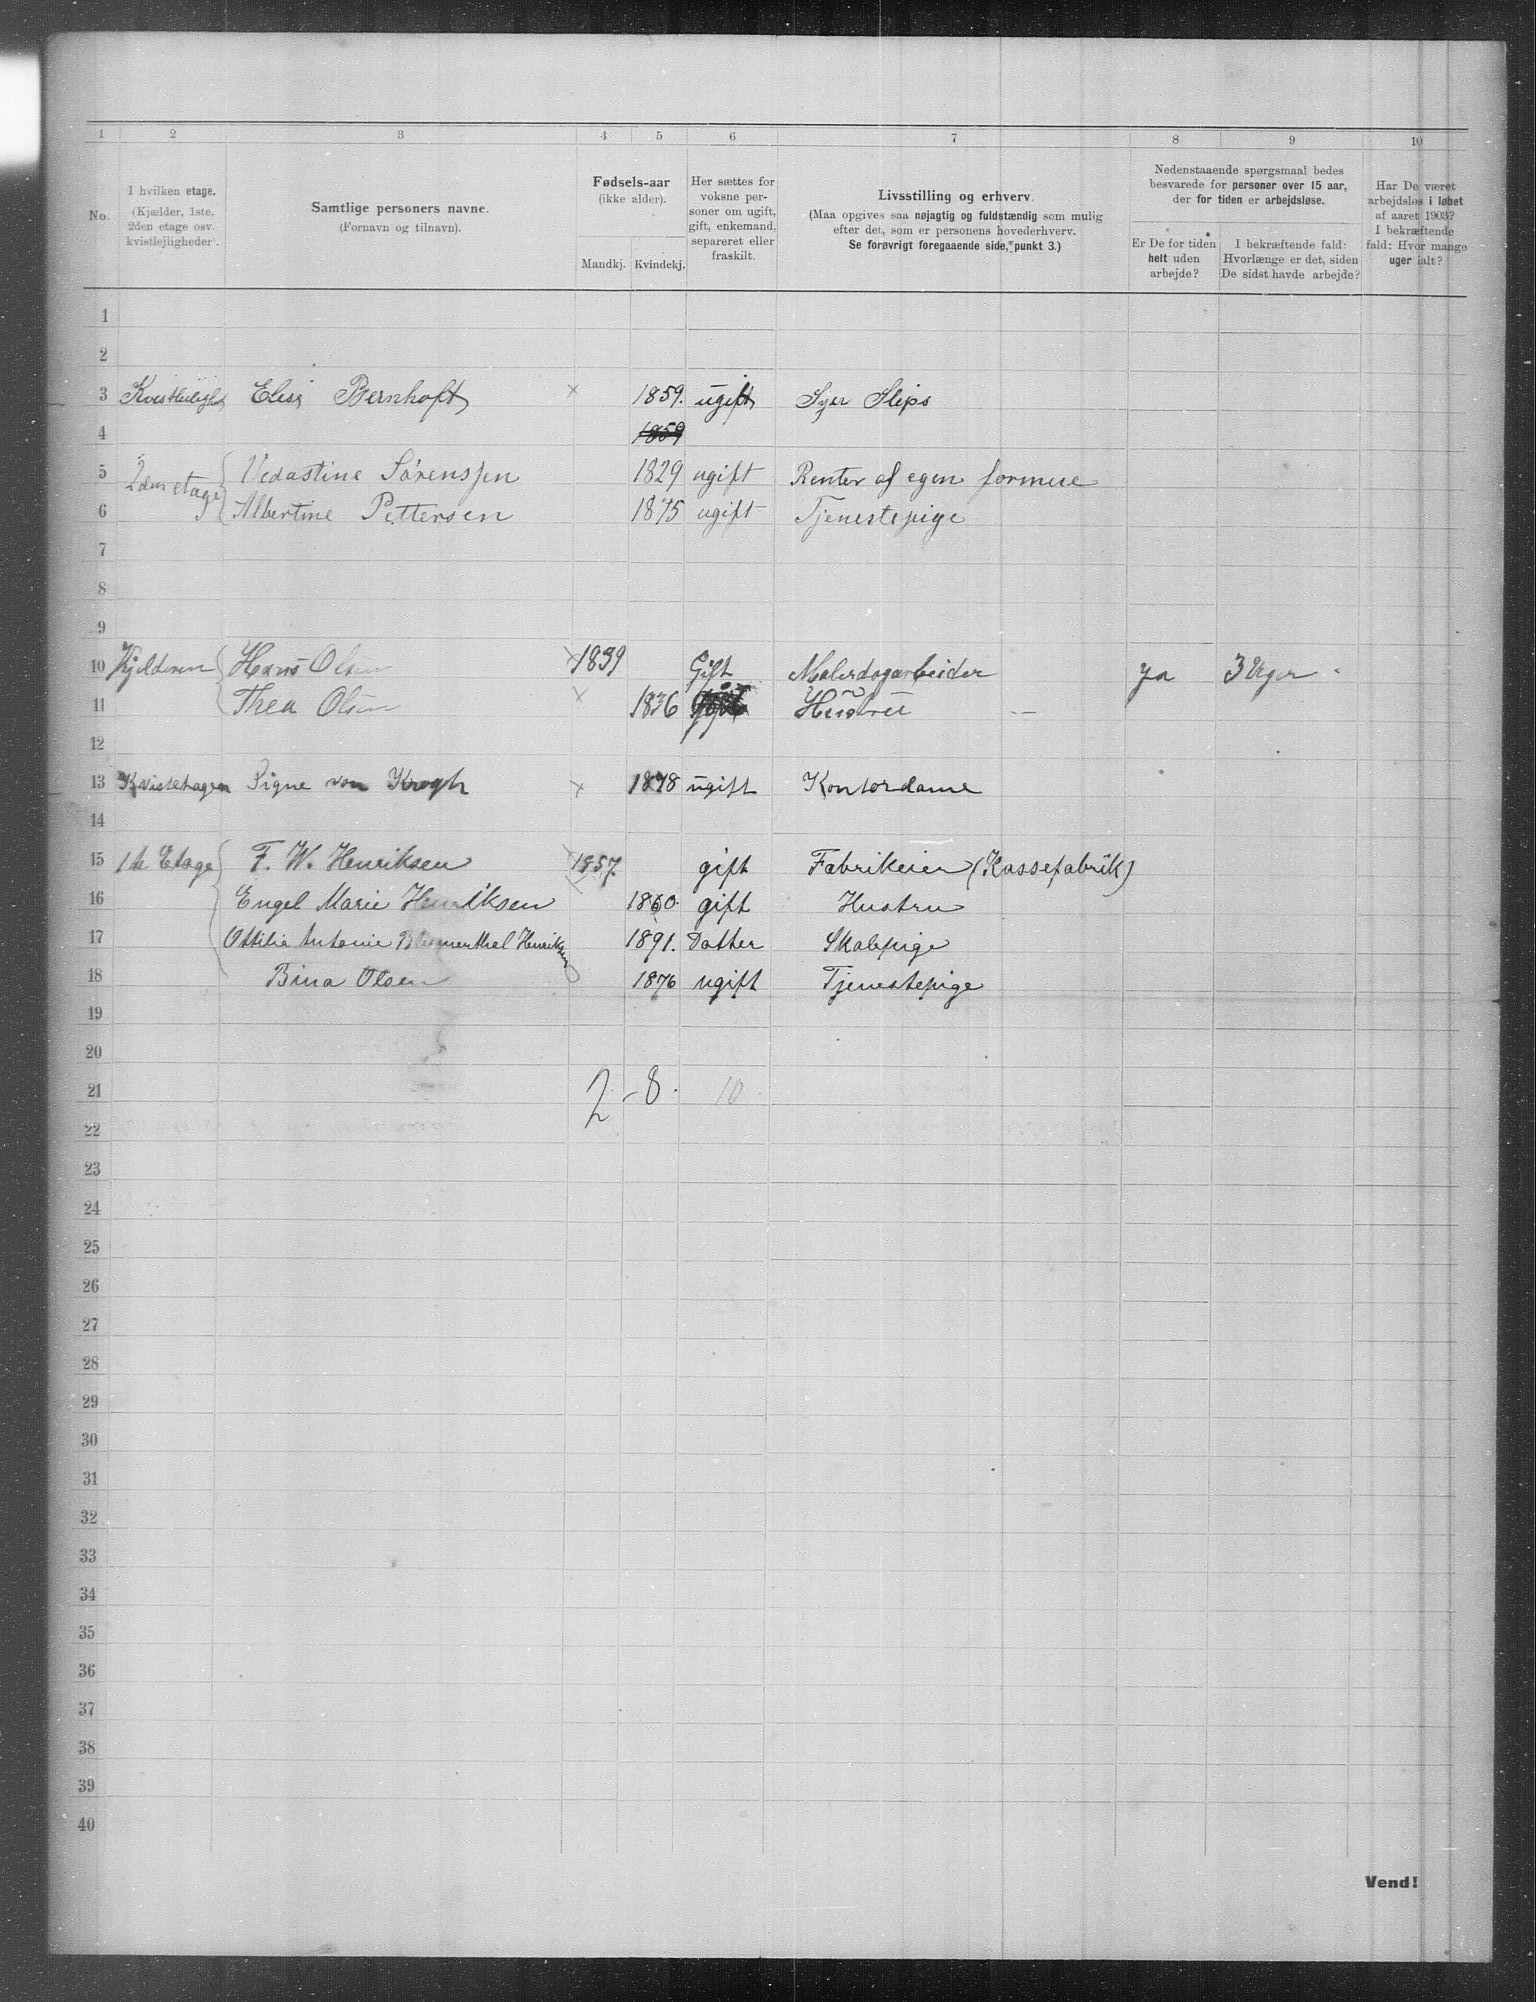 1 2 3 4 5 6 7 8 9 10
No.
I hvilken etage.
(Kjælder, 1ste,
2den etage osv.
kvistlejligheder).
Samtlige personers navne.
(Fornavn og tilnavn).
Fødsels-aar
(ikke alder).
Mandkj. Kvindekj.
Her sættes for
voksne per-
soner om ugift,
gift, enkemand,
separeret eller
fraskilt.
Livsstilling og erhverv.
(Maa opgives saa nøjagtig og fuldstændig som mulig
efter det, som er personens hovederhverv.
Se forøvrigt foregaaende side, punkt 3.)
Nedenstaaende spørgsmaal bedes
besvarede for personer over 15 aar,
der for tiden er arbejdsløse.
Er De for tiden
helt uden
arbejde?
I bekræftende fald:
Hvorlænge er det, siden
De sidst havde arbejde?
Har De været
arbejdsløs i løbet
af aaret 1903?
I bekræftende
fald: Hvor mange
uger ialt?
1
2
3 Elise Bernhoft × 1859. ugift Syer Slips
4 1859
5 2den etage Vedastine Sørenssen 1829 ugift Renter af egen formue
6 Albertine Pettersen 1875 ugift Tjenestepige
7
8
9
10 Kjelderen Hans Olsen × 1839 Gift Malerdagarbeider ja 3 Uger
11 Thea Olsen × 1836 Hüstrü —
12
13 Kvistetagen Signe von Krogh × 1878 ugift Kontordame
14
15 1te Etage F. W. Henriksen × 1857. gift Fabrikeier (Kassefabrik)
16 Engel Marie Henriksen 1860. gift Hustru
17 Ottilia Antonie Blumenthal Henriksen 1891. Datter Skolepige
18 Bina Olsen 1876 ugift Tjenestepige
19
20
21 2 - 8. 10
22
23
24
25
26
27
28
29
30
31
32
33
34
35
36
37
38
39
40
Vend!